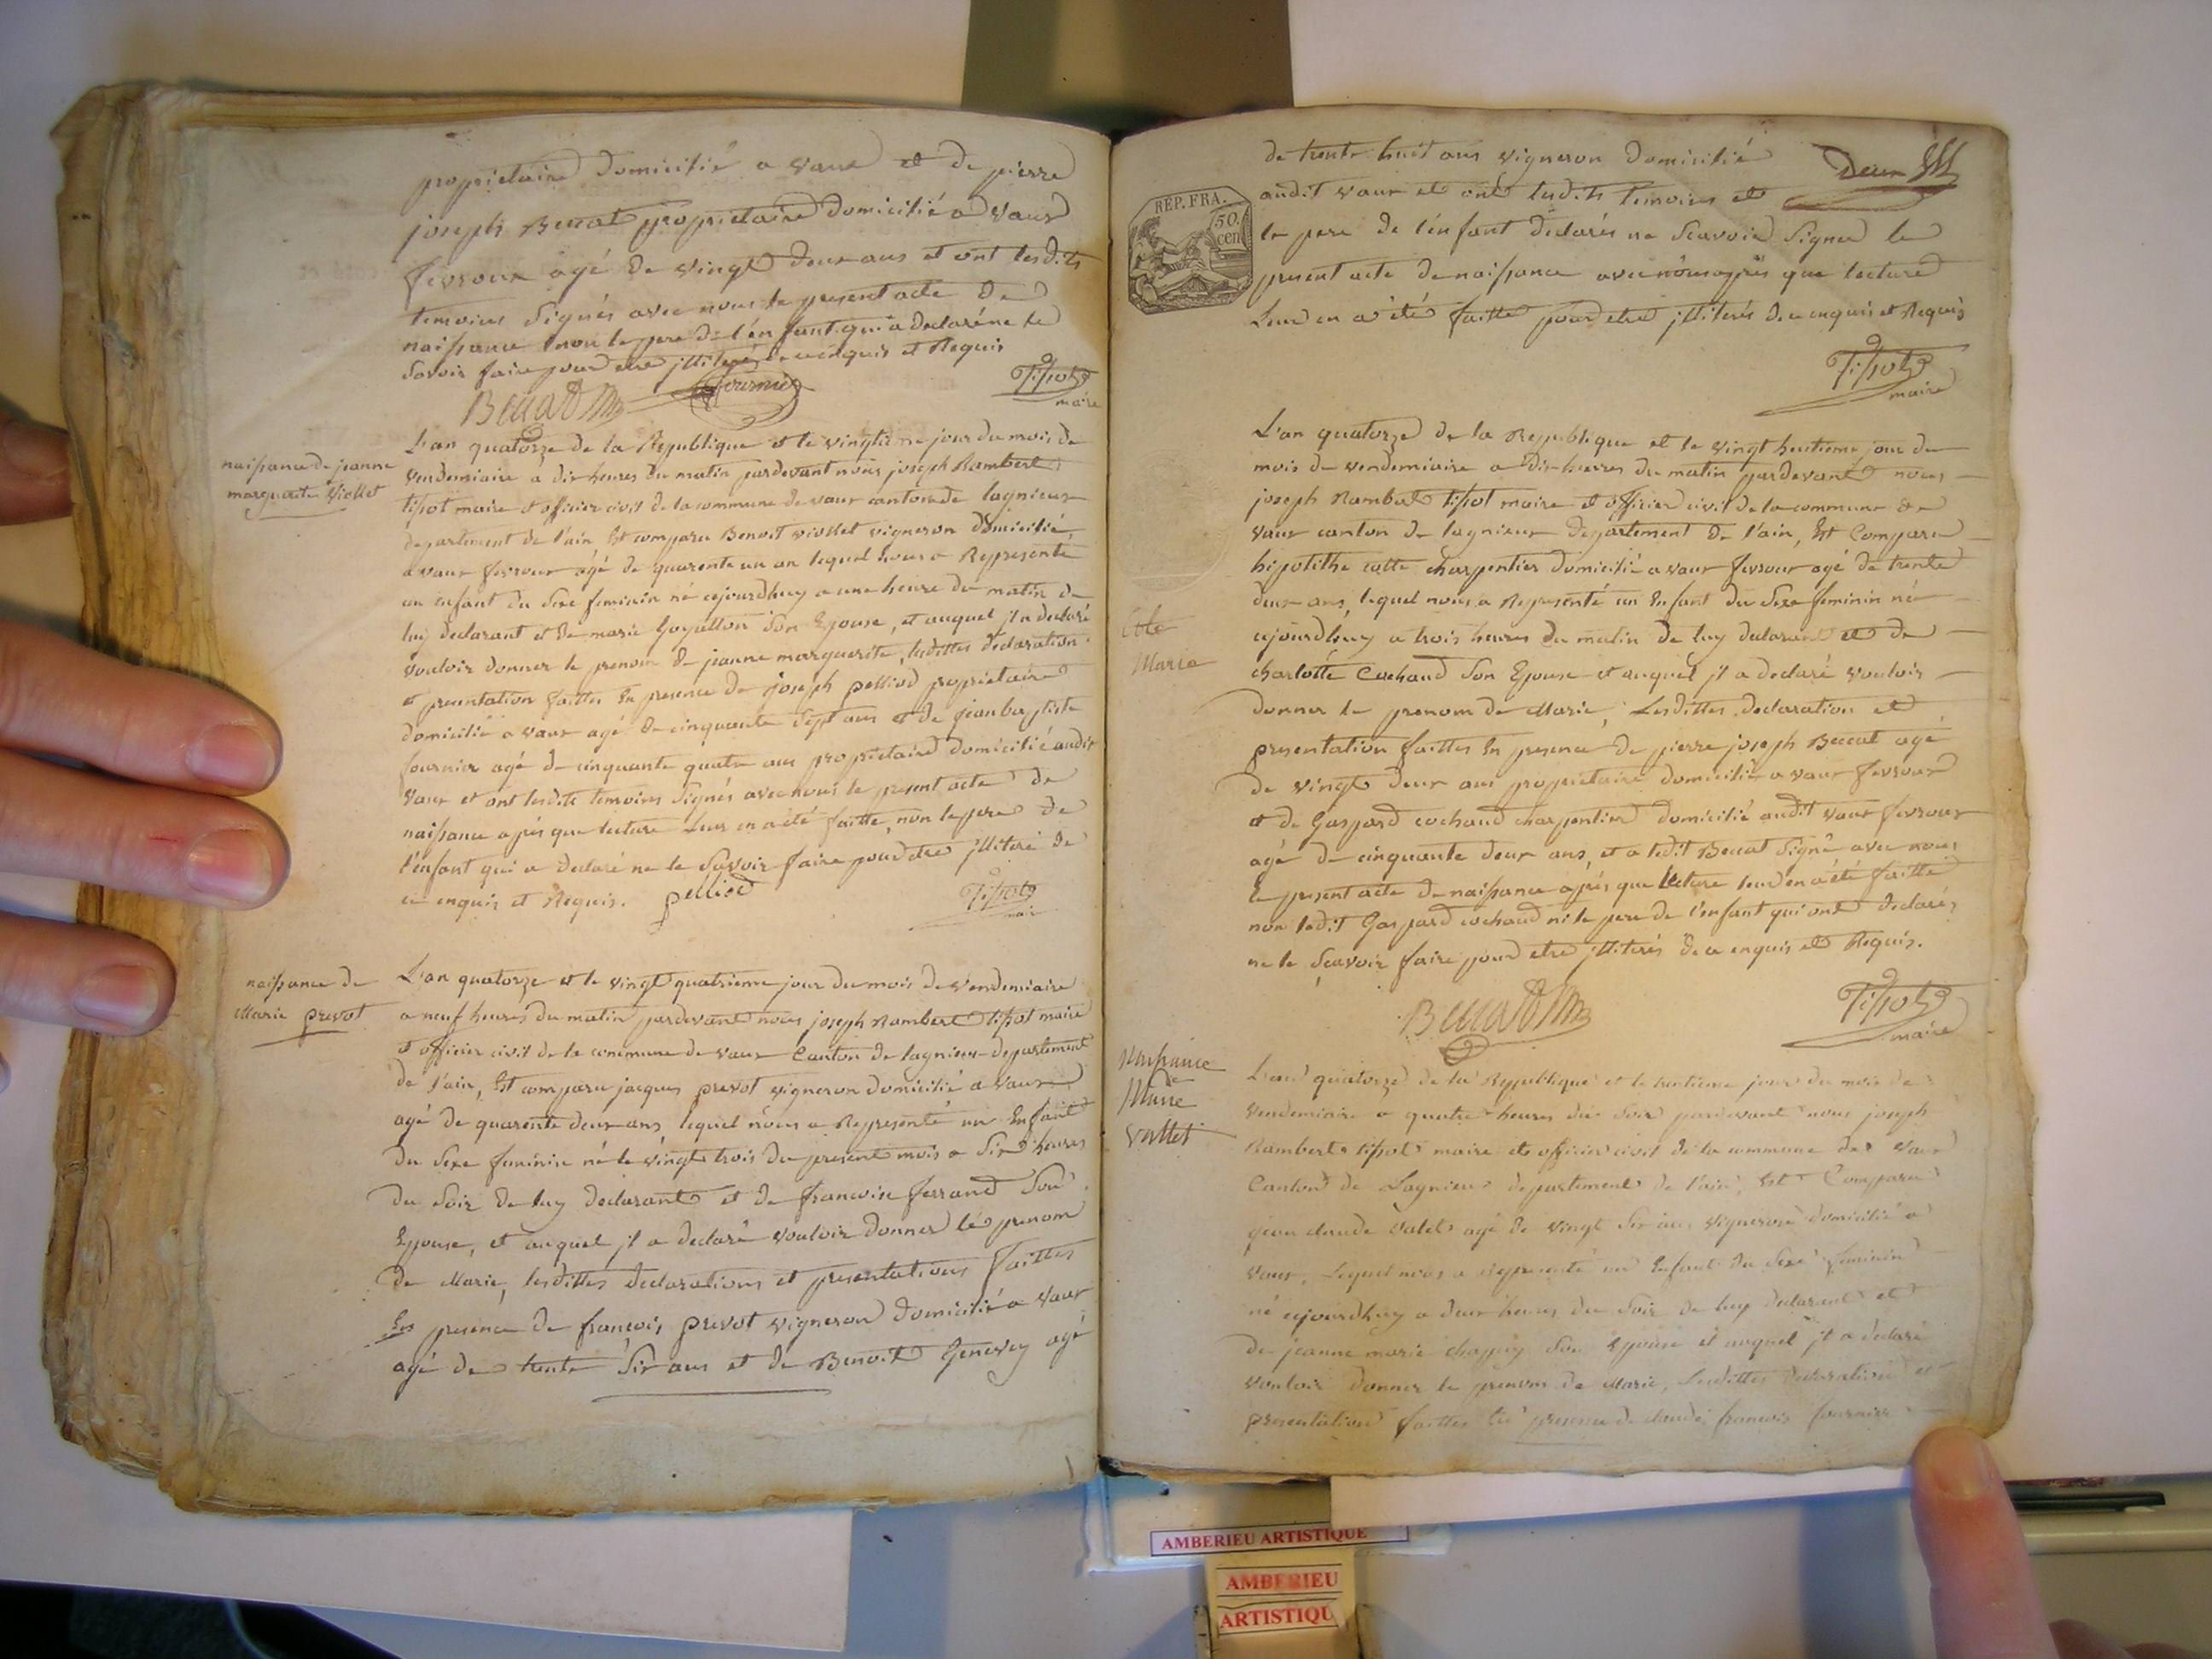 propriétaire domicilié a vaux et de pierre
joseph Beccat propriétaire domicilié a vaux
fevroux agé de vingt deux ans et ont lesdits
temoins signés avec nous le present acte de
naissance non le pere de l'enfant qui a declaré ne le
savoir faire pour etre illiteré de ce enquis et Requis
Beccat fournier Tissot
maire
naissance de jeanne
marguerite Viollet
L'an quatorze de la Republique et le vingtième jour du mois de
vendemiaire a dix heures du matin pardevant nous joseph Rambert
tissot maire et officier civil de la commune de vaux canton de lagnieux
departement de l'ain Est comparu Benoit viollet vigneron domicilié
a vaux fevroux agé de quarente un an lequel nous a Representé
un enfant du sexe feminin né cejourdhuy a une heure du matin de
luy declarant et de marie Goyatton son Epouse, et auquel jl a declaré
vouloir donner le prenom de jeanne marguerite, lesdittes declaration
et presentation faittes En presence de joseph pelliod propriétaire
domicilié a vaux agé de cinquante sept ans et de jean baptiste
fournier agé de cinquante quatre ans propriétaire domicilié audit
vaux et ont lesdits temoins signés avec nous le present acte de
naissance après que lecture leur en a été faitte, non le pere de
l'enfant qui a declaré ne le savoir faire pour etre illiteré de
ce enquis et Requis. pelliod Tissot
maire
naissance de
Marie prevot
L'an quatorze et le vingt quatrieme jour du mois de vendemiaire
a neuf heures du matin pardevant nous joseph Rambert tissot maire
et officier civil de la commune de vaux Canton de lagnieux departement
de l'ain, Est comparu jacques prevot vigneron domicilié a vaux
agé de quarente deux ans lequel nous a Representé un Enfant
du sexe feminin né le vingt trois du present mois a six heures
du soir de luy declarant et de francoise ferrand son
Epouse, et auquel jl a declaré vouloir donner le prenom
de Marie, lesdittes declarations et presentations faittes
En presence de francois prevot vigneron domicilié a vaux
agé de trente six ans et de Benoit Genevey agé
de trente huit ans vigneron domicilié
audit vaux et ont lesdits temoins et
REP. FRA.
50.
cen
le pere de l'enfant declarés ne scavoir signer le
present acte de naissance avec nous après que lecture
Leur en a été faitte pour etre jlliterés de ce enquis et Requis
Tissot
maire
L'an quatorze de la Republique et le vingt huitieme jour du
mois de vendemiaire a dix heures du matin pardevant nous
joseph Rambert tissot maire et officier civil de la commune de
vaux canton de lagnieux departement de l'ain, Est Comparu
hipotithe cotte charpentier domicilié a vaux fevroux agé de trente
deux ans, lequel nous a Representé un Enfant du sexe feminin né
Cote
Marie
cejourdhuy a trois heures du matin de luy declarant et de
charlotte Cochand son Epouse et auquel jl a declaré vouloir
donner le prenom de Marie, Lesdittes declaration et
presentation faittes En presence de pierre joseph Beccat agé
de vingt deux ans propriétaire domicilié a vaux fevroux
et de Gaspard cochand charpentier domicilié audit vaux fevroux
agé de cinquante deux ans, et a ledit Beccat signé avec nous
le present acte de naissance après que lecture leur en a été faitte
non ledit Gaspard cochand ni le pere de l'enfant qui ont declarés
ne le scavoir faire pour etre jlliterés de ce enquis et Requis.
Beccat Tissot
maire
Naissance
de
Marie
vallet
L'an quatorze de la Republique et le trentieme jour du mois de
vendemiaire a quatre heures du soir pardevant nous joseph
Rambert tissot maire et officier civil de la commune de vaux
Canton de Lagnieux departement de l'ain, Est Comparu
jean claude valet agé de vingt six ans vigneron domicilié a
vaux, Lequel nous a Representé un Enfant du sexe feminin
né cejourdhuy a deux heures du soir de luy declarant et
de jeanne marie chappuy son Epouse et auquel jl a declaré
vouloir donner le prenom de Marie, Lesdittes declaration et
presentation faittes En presence de claude francois fournier
AMBERIEU ARTISTIQUE
AMBERIEU
ARTISTIQU